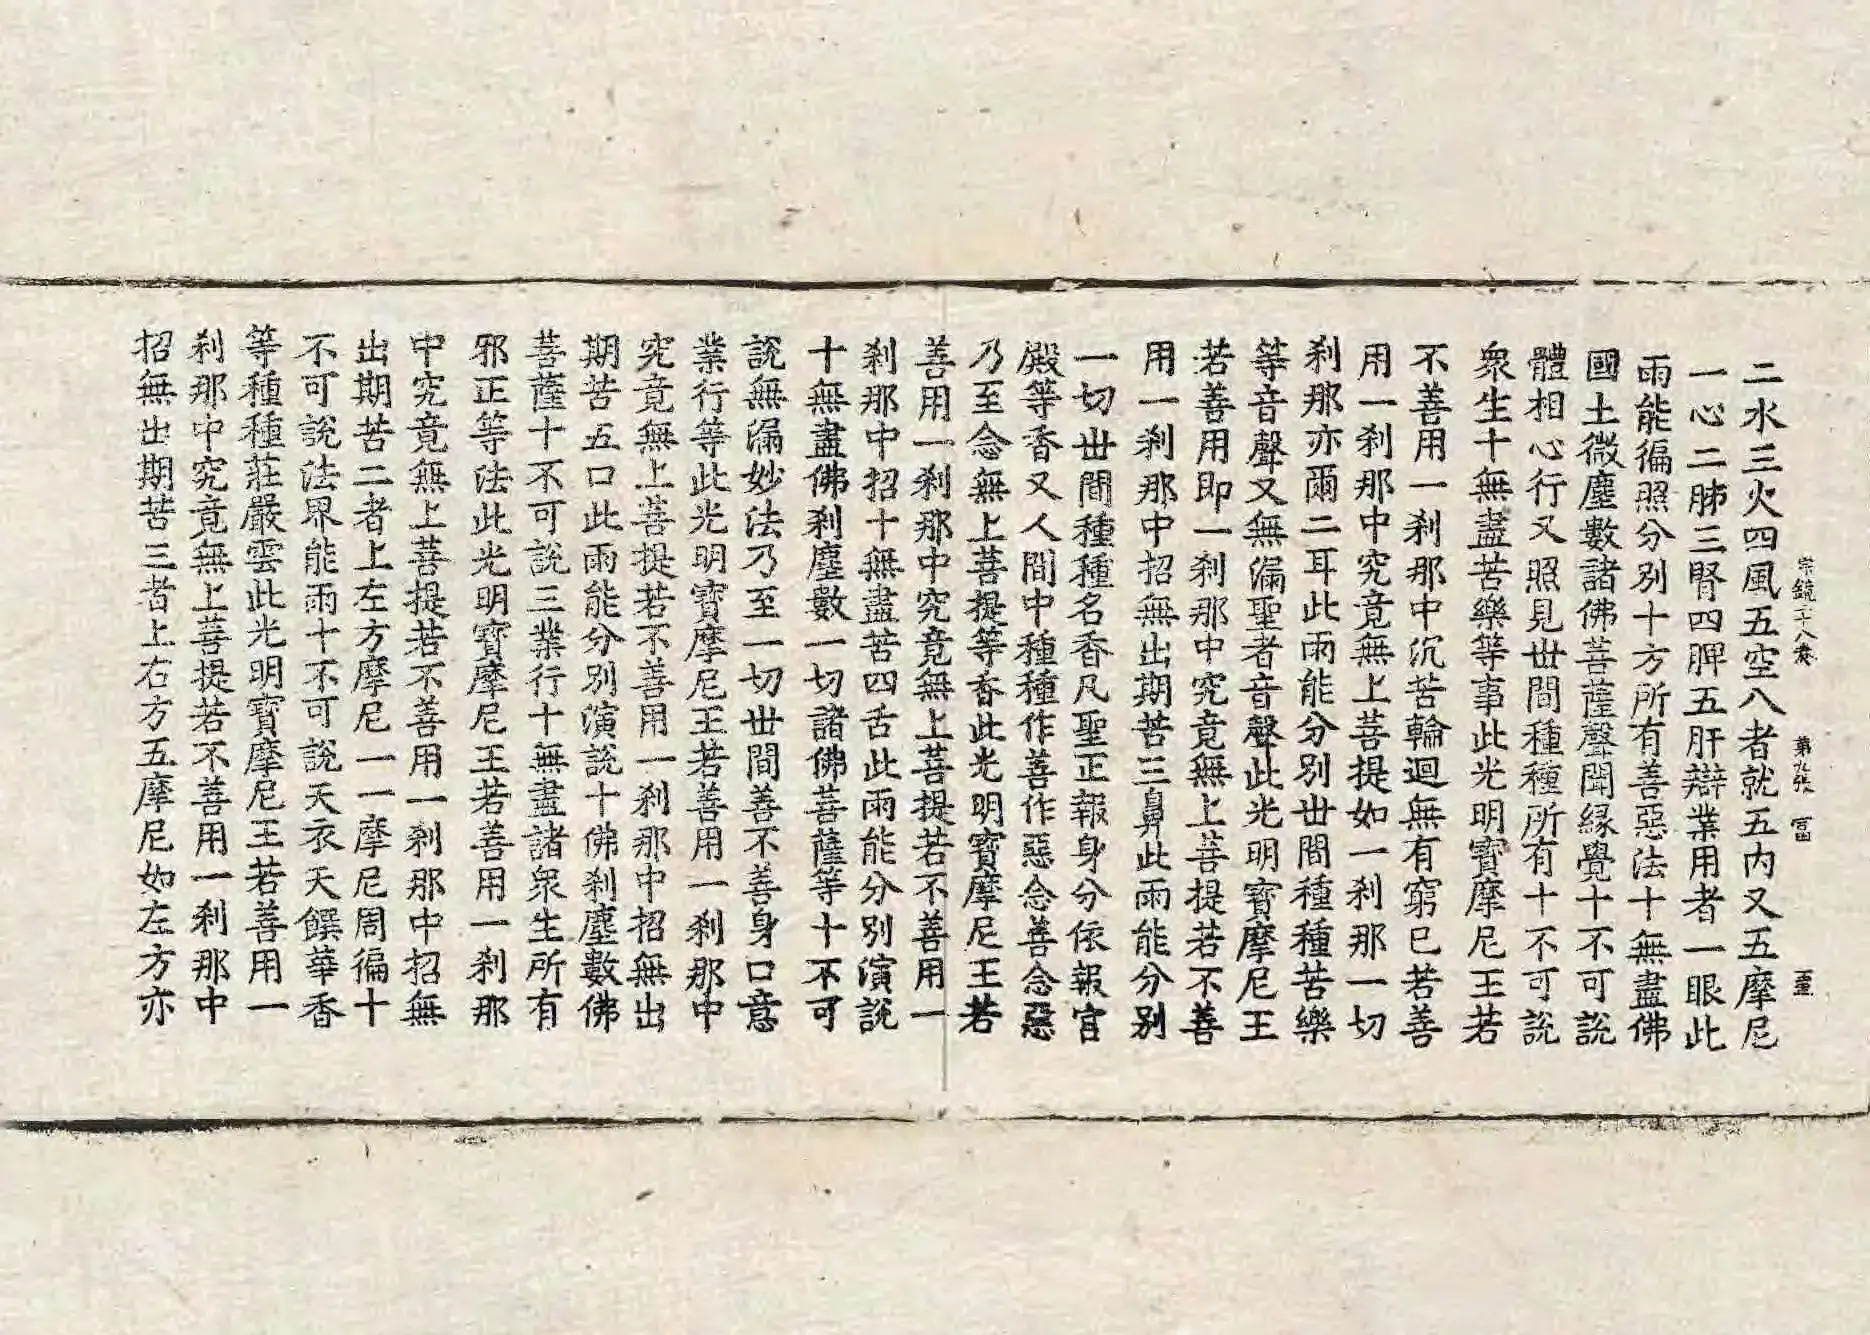 宗鏡二十八卷 第九張 富
二水三火四風五空八者就五內又五摩尼
一心二肺三腎四脾五肝辯業用者一眼此
雨能徧照分別十方所有善惡法十無盡佛
國土微塵數諸佛菩薩聲聞緣覺十不可說
體相心行又照見丗間種種所有十不可說
衆生十無盡苦樂等事此光明寶摩尼王若
不善用一剎那中沉苦輪迴無有窮已若善
用一剎那中究竟無上菩提如一剎那一切
剎那亦爾二耳此雨能分別丗間種種苦樂
等音聲又無漏聖者音聲此光明寶摩尼王
若善用即一剎那中究竟無上菩提若不善
用一剎那中招無出期苦三鼻此雨能分別
一切丗間種種名香凡聖正報身分依報宮
殿等香又人間中種種作善作惡念善念惡
乃至念無上菩提等香此光明寶摩尼王若
善用一剎那中究竟無上菩提若不善用一
剎那中招十無盡苦四舌此雨能分別演說
十無盡佛剎塵數一切諸佛菩薩等十不可
說無漏妙法乃至一切丗間善不善身口意
業行等此光明寶摩尼王若善用一剎那中
究竟無上菩提若不善用一剎那中招無出
期苦五口此雨能分別演說十佛剎塵數佛
菩薩十不可說三業行十無盡諸衆生所有
邪正等法此光明寶摩尼王若善用一剎那
中究竟無上菩提若不善用一剎那中招無
出期苦二者上左方摩尼一一摩尼周徧十
不可說法界能雨十不可說天衣天饌華香
等種種莊嚴雲此光明寶摩尼王若善用一
剎那中究竟無上菩提若不善用一剎那中
招無出期苦三者上右方五摩尼如左方亦